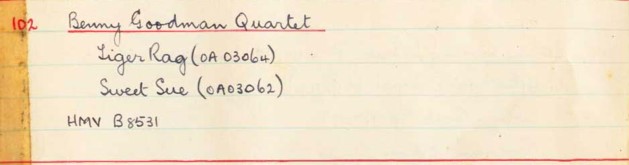 102 Benny Goodman Quartet
Tiger Rag (OA 03064)
Sweet Sue (OA03062)
HMV B8531